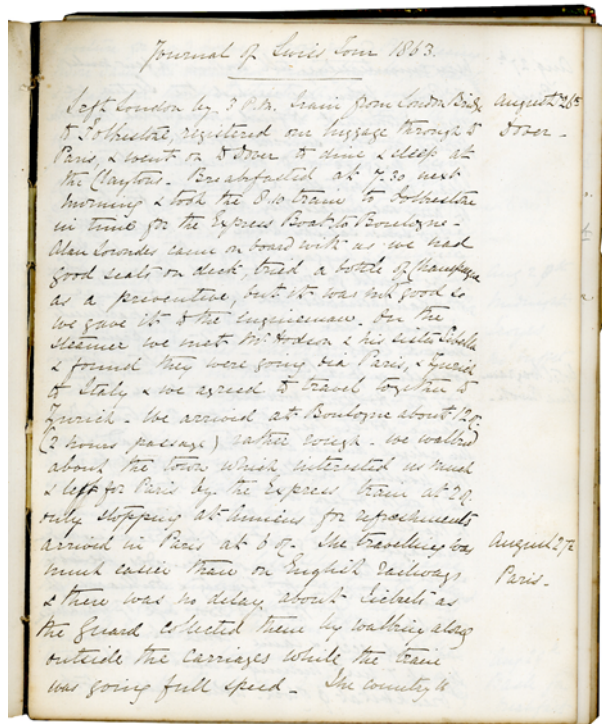 Journal of Swiss Tour 1863.
Left London by 3 P.M. Train from London Bridge August 26th
to Folkestone, registered our luggage through to Dover -
Paris, & went on to Dover to dine & sleep at
the Claytons - Breakfasted at 7.30 next
morning & took the 8.10 train to Folkestone
in time for the Express Boat to Boulogne -
Alan Lowndes came on board with us we had
good seats on deck, tried a bottle of Champagne
as a preventive, but it was not good so
we gave it to the engineman. On the
steamer we met Mr. Hodson & his sister
& found they were going via Paris, & Zurich
to Italy & we agreed to travel together to
Zurich - We arrived at Boulogne about
(2 hours passage) rather rough - we walked
about the town which interested us much
& left for Paris by the Express train at
only stopping at Amiens for refreshments
arrived in Paris at The travelling was August 27th
much easier than on English railways Paris -
& there was no delay about tickets as
the Guard collected them by walking along
outside the carriages while the train
was going full speed - The country is